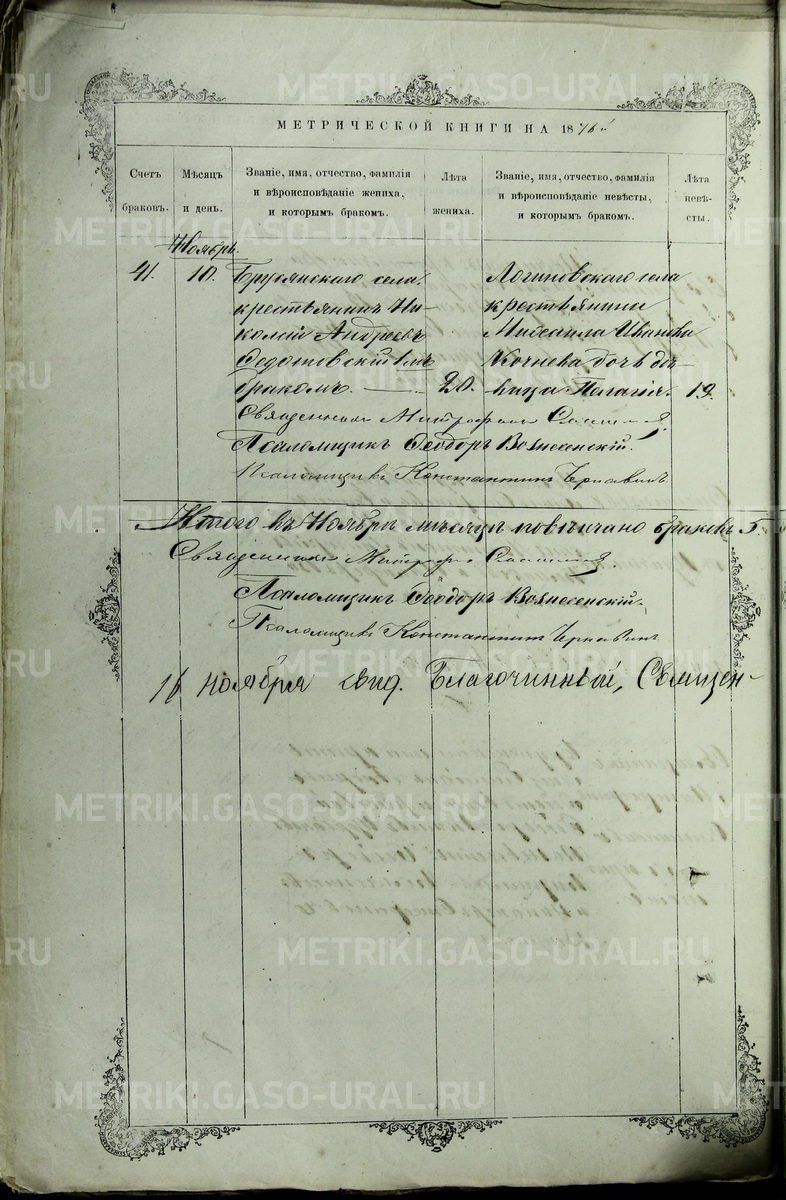 МЕТРИЧЕСКОЙ КНИГИ НА 1876й
Счетъ браковъ.
Мѣсяцъ и день.
Званіе, имя, отчество, фамилія и вѣроисповѣданіе жениха, и которымъ бракомъ.
Лѣта жениха.
Званіе, имя, отчество, фамилія и вѣроисповѣданіе невѣсты, и которымъ бракомъ.
Лѣта невѣ- сты.
Ноябрь.
41.
10.
Брусянскаго села
крестьянинъ Ни-
колай Андреевъ
Федотовскій 1мъ
бракомъ.
20.
Логиновскаго села
крестьянина
Мисаила Иванова
Кочнева дочь дѣ-
вица Пелагія.
19.
Священникъ Митрофанъ
Псаломщикъ Ѳеодоръ Вознесенскій.
Псаломщикъ Константинъ Чернавинъ
Итого въ Ноябрѣ мѣсяцѣ повѣнчано браковъ 5.
Священникъ Митрофанъ
Псаломщикъ Ѳеодоръ Вознесенскій.
Псаломщикъ Константинъ Чернавинъ
16 ноября свид. Благочинный, Священ-
METRIKI.GASO-URAL.RU